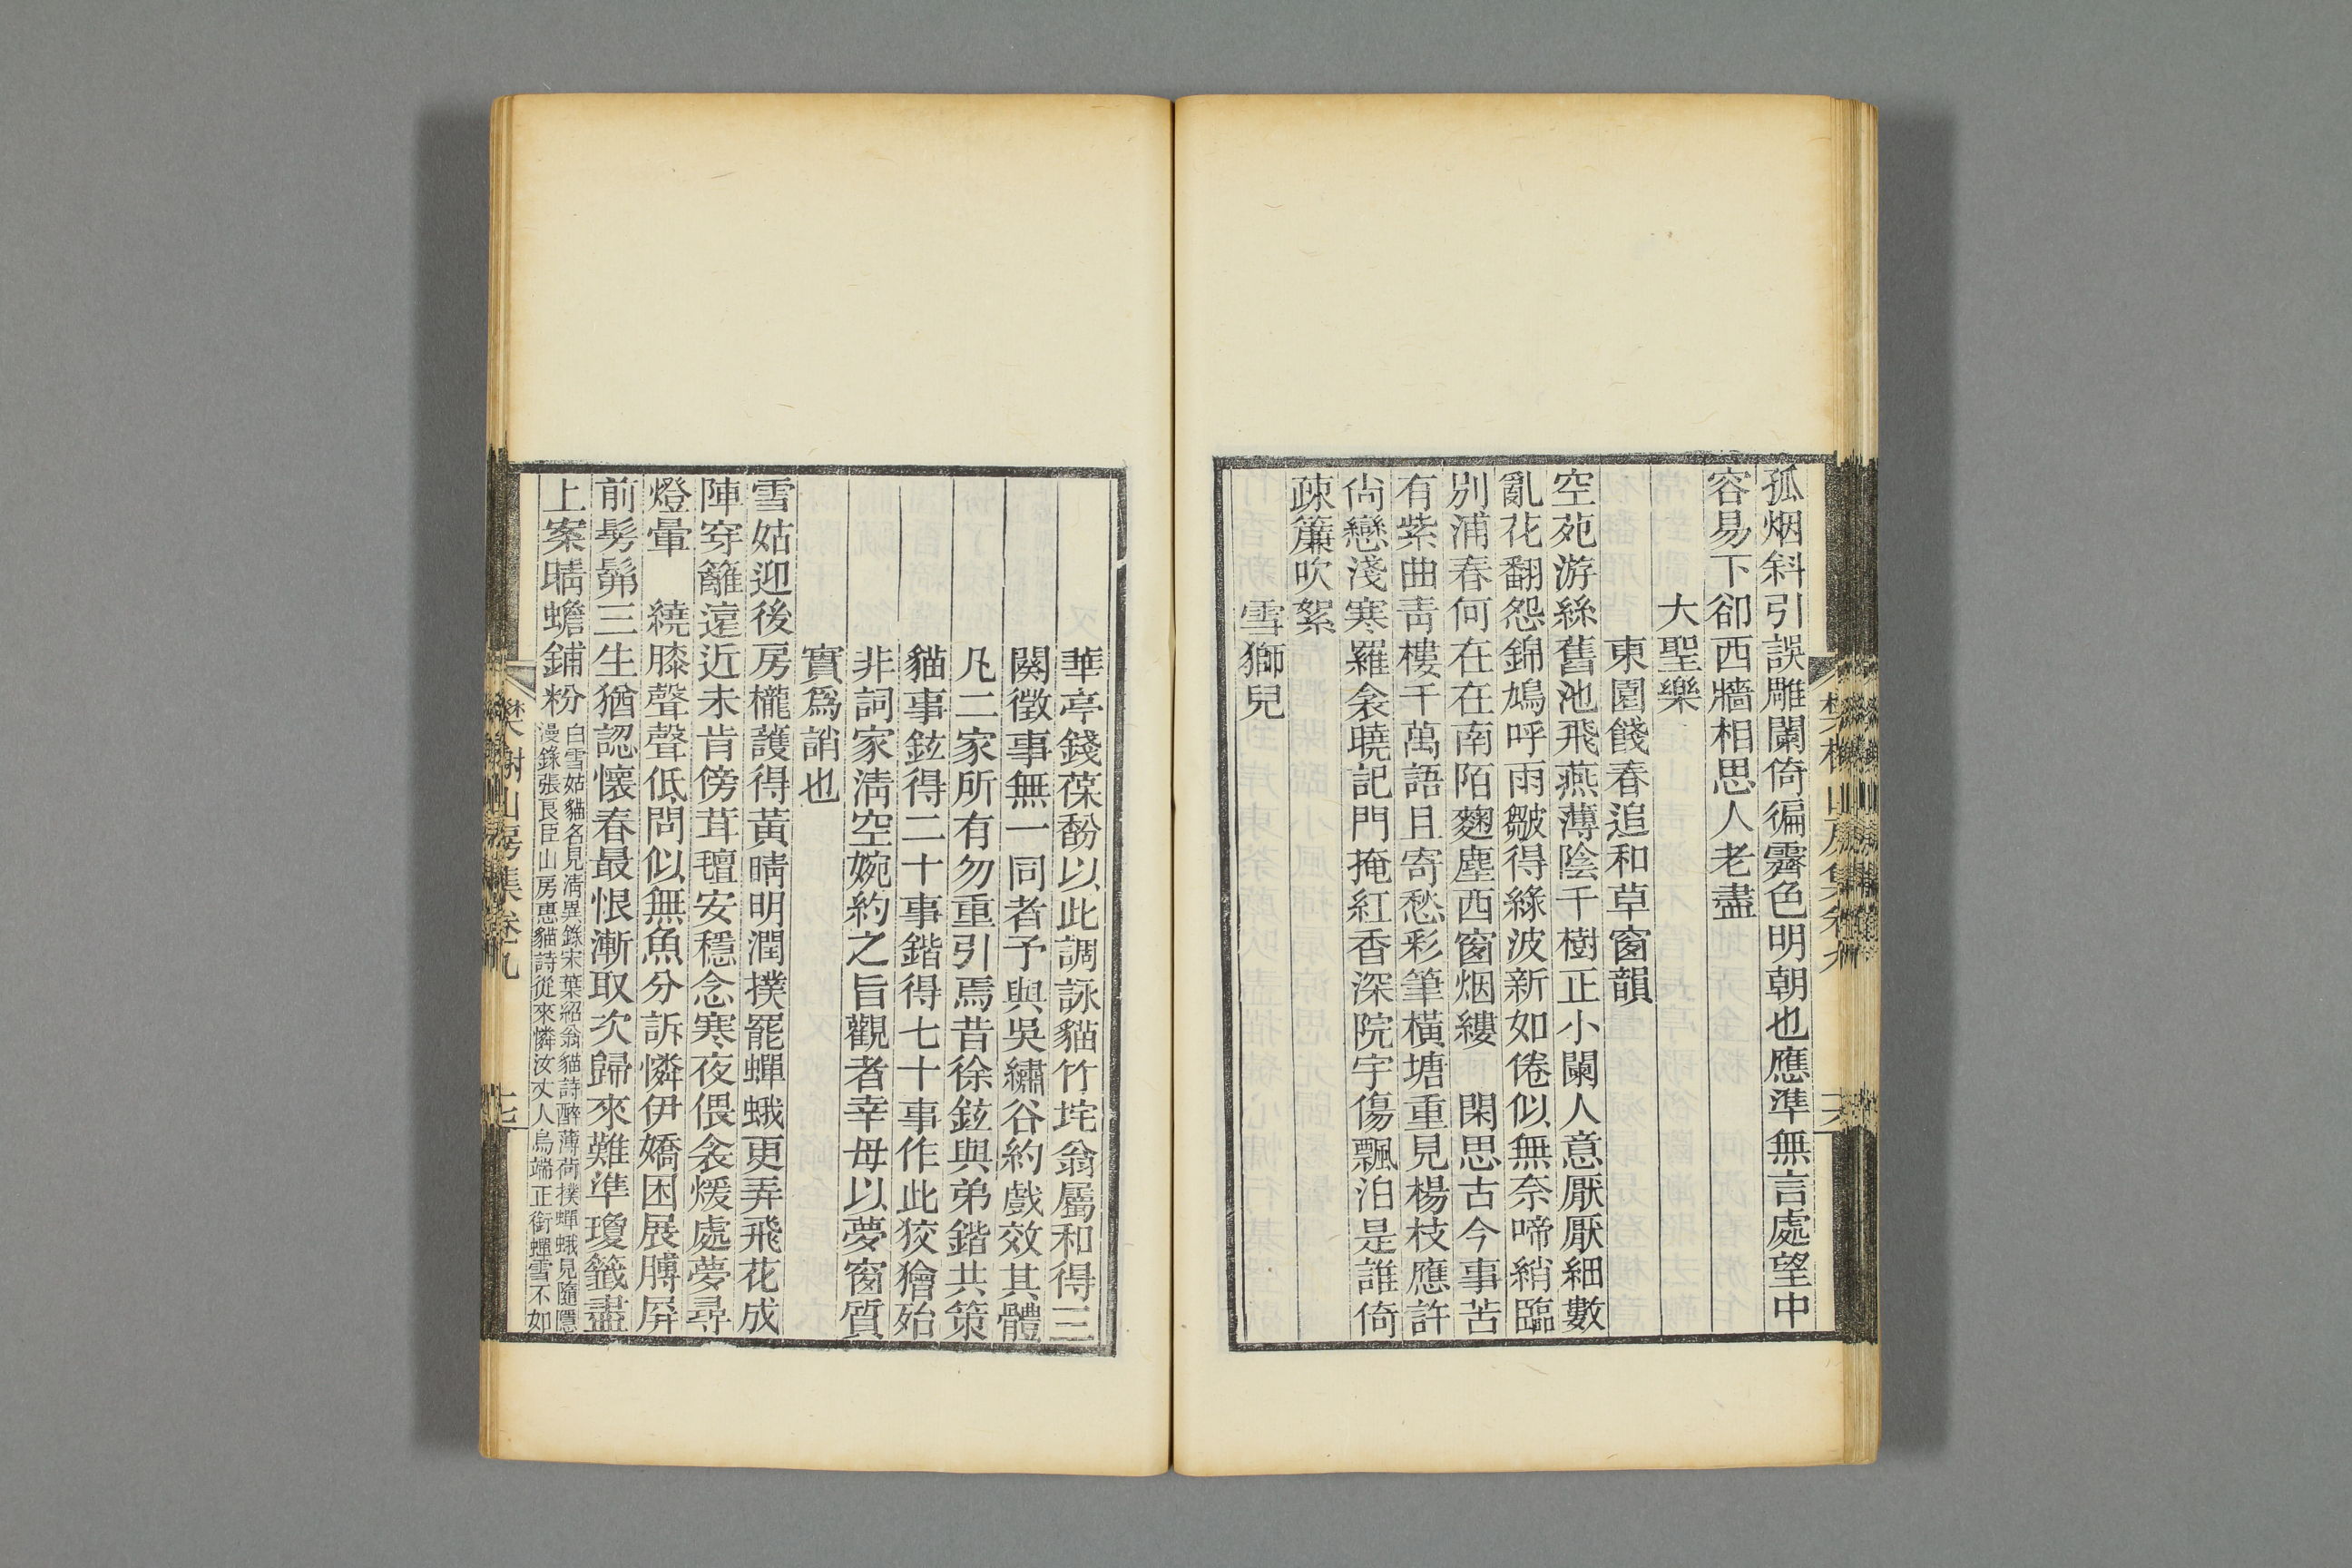 孤烟斜引誤雕闌倚徧霽色明朝也應準無言處望中
容易下卻西牆相思人老盡
大聖樂
東園餞春追和草窗韻
空苑游絲舊池飛燕薄陰千樹正小闌人意厭厭細數
亂花翻怨錦鳩呼雨皺得綠波新如倦似無奈啼綃臨
別浦春何在在南陌麴塵西窗烟縷 閑思古今事苦
有紫曲靑樓千萬語且寄愁彩筆橫塘重見楊枝應許
尙戀淺寒羅衾曉記門掩紅香深院宇傷飄泊是誰倚
疎簾吹絮
雪獅兒
華亭錢葆馚以此調詠貓竹垞翁屬和得三
闋徵事無一同者予與吳繡谷約戲效其體
凡二家所有勿重引焉昔徐鉉與弟鍇共策
貓事鉉得二十事鍇得七十事作此狡獪殆
非詞家淸空婉約之旨觀者幸毋以夢窗質
實爲誚也
雪姑迎後房櫳護得黃睛明潤撲罷蟬蛾更弄飛花成
陣穿籬遠近未肯傍茸氊安穩念寒夜偎衾煖處夢尋
燈暈 繞膝聲聲低問似無魚分訴憐伊嬌困展膊屛
前髣髴三生猶認懷春最恨漸取次歸來難準瓊籤盡
上案晴蟾鋪粉
白雪姑貓名見淸異錄宋葉紹翁貓詩醉薄荷撲蟬蛾見隨隱
漫錄張良臣山房惠貓詩從來憐汝丈人烏端正銜蟬雪不如
樊榭山房集卷九